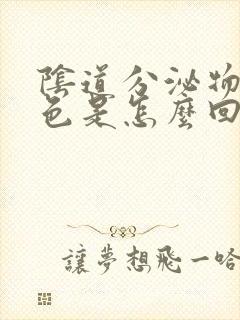 陰道分泌物
色是怎麼回
讓夢想飛一哈